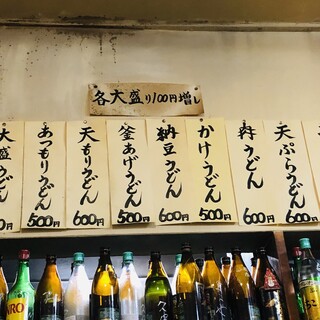 各大盛り100円増し
天ぷらうどん
600円
うどん
600円
かけうどん
500円
納豆うどん
600円
釜あげうどん
500円
天もりうどん
600円
あつもりうどん
500円
大盛うどん
0円